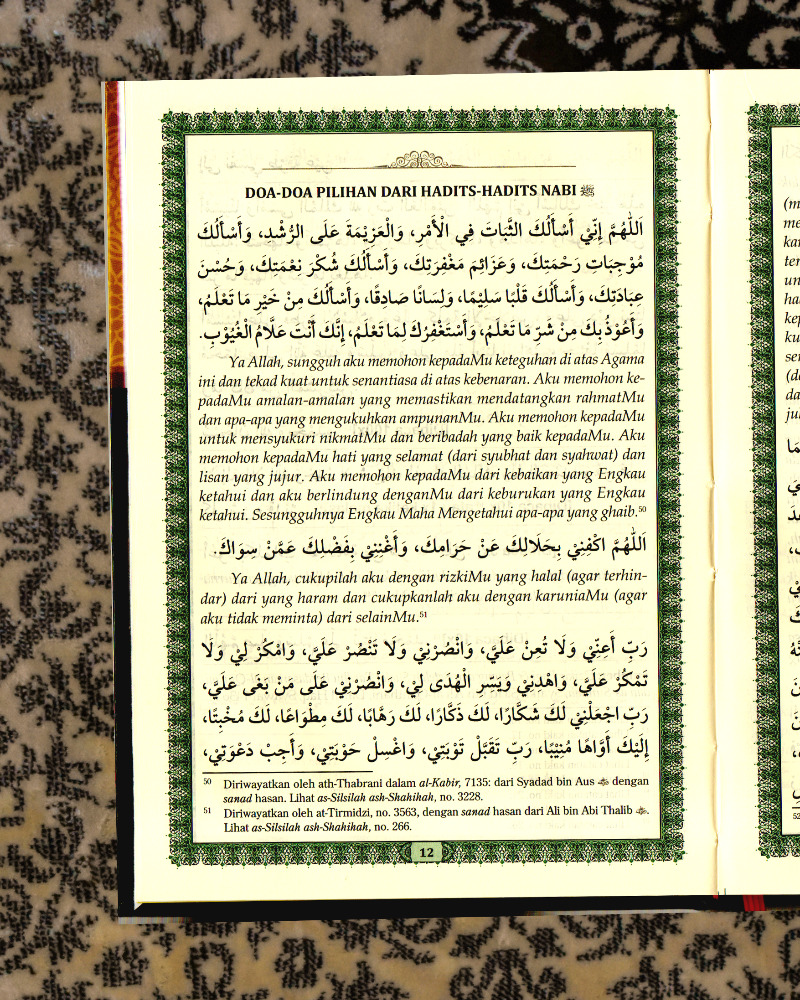 DOA-DOA PILIHAN DARI HADITS-HADITS NABI ﷺ
اَللّٰهُمَّ إِنِّيْ أَسْأَلُكَ الثَّبَاتَ فِي الْأَمْرِ، وَالْعَزِيْمَةَ عَلَى الرُّشْدِ، وَأَسْأَلُكَ
مُوْجِبَاتِ رَحْمَتِكَ، وَعَزَائِمَ مَغْفِرَتِكَ، وَأَسْأَلُكَ شُكْرَ نِعْمَتِكَ، وَحُسْنَ
عِبَادَتِكَ، وَأَسْأَلُكَ قَلْبًا سَلِيْمًا، وَلِسَانًا صَادِقًا، وَأَسْأَلُكَ مِنْ خَيْرِ مَا تَعْلَمُ،
وَأَعُوْذُ بِكَ مِنْ شَرِّ مَا تَعْلَمُ، وَأَسْتَغْفِرُكَ لِمَا تَعْلَمُ، إِنَّكَ أَنْتَ عَلَّامُ الْغُيُوْبِ.
Ya Allah, sungguh aku memohon kepadaMu keteguhan di atas Agama
ini dan tekad kuat untuk senantiasa di atas kebenaran. Aku memohon ke-
padaMu amalan-amalan yang memastikan mendatangkan rahmatMu
dan apa-apa yang mengukuhkan ampunanMu. Aku memohon kepadaMu
untuk mensyukuri nikmatMu dan beribadah yang baik kepadaMu. Aku
memohon kepadaMu hati yang selamat (dari syubhat dan syahwat) dan
lisan yang jujur. Aku memohon kepadaMu dari kebaikan yang Engkau
ketahui dan aku berlindung denganMu dari keburukan yang Engkau
ketahui. Sesungguhnya Engkau Maha Mengetahui apa-apa yang ghaib.⁵⁰
اَللّٰهُمَّ اكْفِنِيْ بِحَلَالِكَ عَنْ حَرَامِكَ، وَأَغْنِنِيْ بِفَضْلِكَ عَمَّنْ سِوَاكَ.
Ya Allah, cukupilah aku dengan rizkiMu yang halal (agar terhin-
dar) dari yang haram dan cukupkanlah aku dengan karuniaMu (agar
aku tidak meminta) dari selainMu.⁵¹
رَبِّ أَعِنِّيْ وَلَا تُعِنْ عَلَيَّ، وَانْصُرْنِيْ وَلَا تَنْصُرْ عَلَيَّ، وَامْكُرْ لِيْ وَلَا
تَمْكُرْ عَلَيَّ، وَاهْدِنِيْ وَيَسِّرِ الْهُدَى لِيْ، وَانْصُرْنِيْ عَلَى مَنْ بَغَى عَلَيَّ،
رَبِّ اجْعَلْنِيْ لَكَ شَكَّارًا، لَكَ ذَكَّارًا، لَكَ رَهَّابًا، لَكَ مِطْوَاعًا، لَكَ مُخْبِتًا،
إِلَيْكَ أَوَّاهًا مُنِيْبًا، رَبِّ تَقَبَّلْ تَوْبَتِيْ، وَاغْسِلْ حَوْبَتِيْ، وَأَجِبْ دَعْوَتِيْ،
50 Diriwayatkan oleh ath-Thabrani dalam al-Kabir, 7135: dari Syadad bin Aus dengan
sanad hasan. Lihat as-Silsilah ash-Shahihah, no. 3228.
51 Diriwayatkan oleh at-Tirmidzi, no. 3563, dengan sanad hasan dari Ali bin Abi Thalib.
Lihat as-Silsilah ash-Shahihah, no. 266.
12